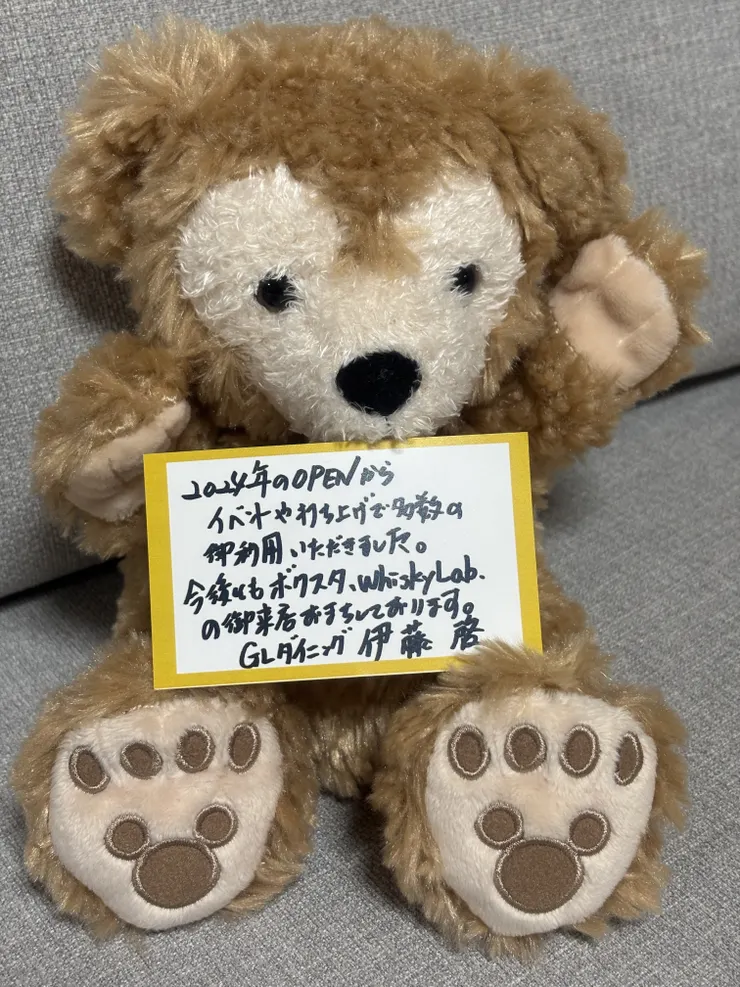 2024年のOPENから
イベントや打ち上げで多数の
御利用いただきました。
今後ともボクスタ、WhiskyLab.
の御来店おまちしております。
GLダイニング 伊藤 啓